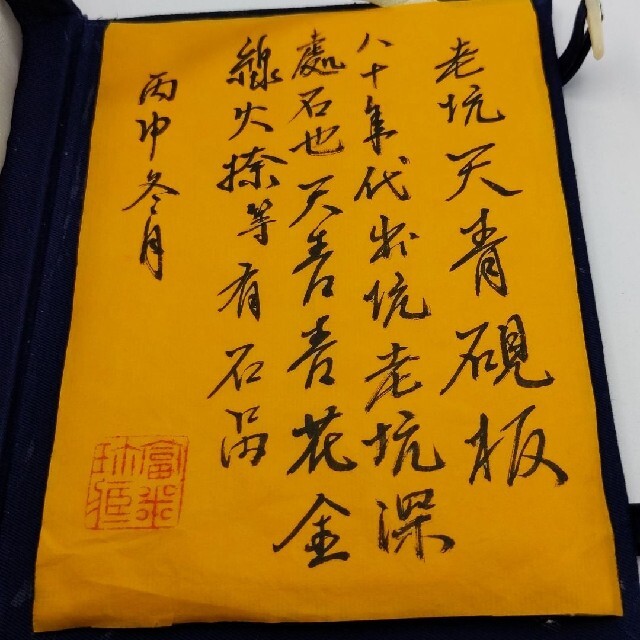 老坑天青硯板
八十年代出坑老坑深
處石也天青青花金
線火捺等有石品
丙申冬月